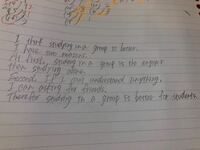 I that studying in a group is better.
I have two reasons.
At first, studing in a group is the enjoyer
than studying alone.
Second, if I can't understand anything,
I can asking for friends.
Therefor studing in a group is better for students.